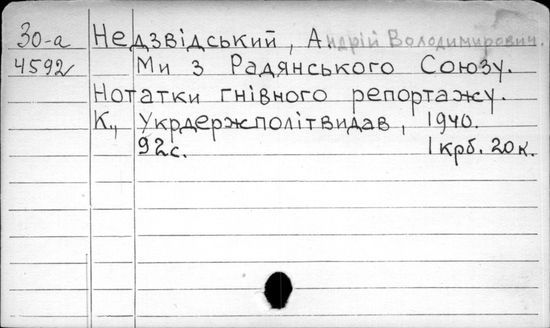 30-а Недзвідський, Андрій Володимирович.
4592 Ми з Радянського Союзу.
Нотатки гнівного репортажу.
К., Укрдержполітвидав, 1940.
92с. 1 крб. 20 к.